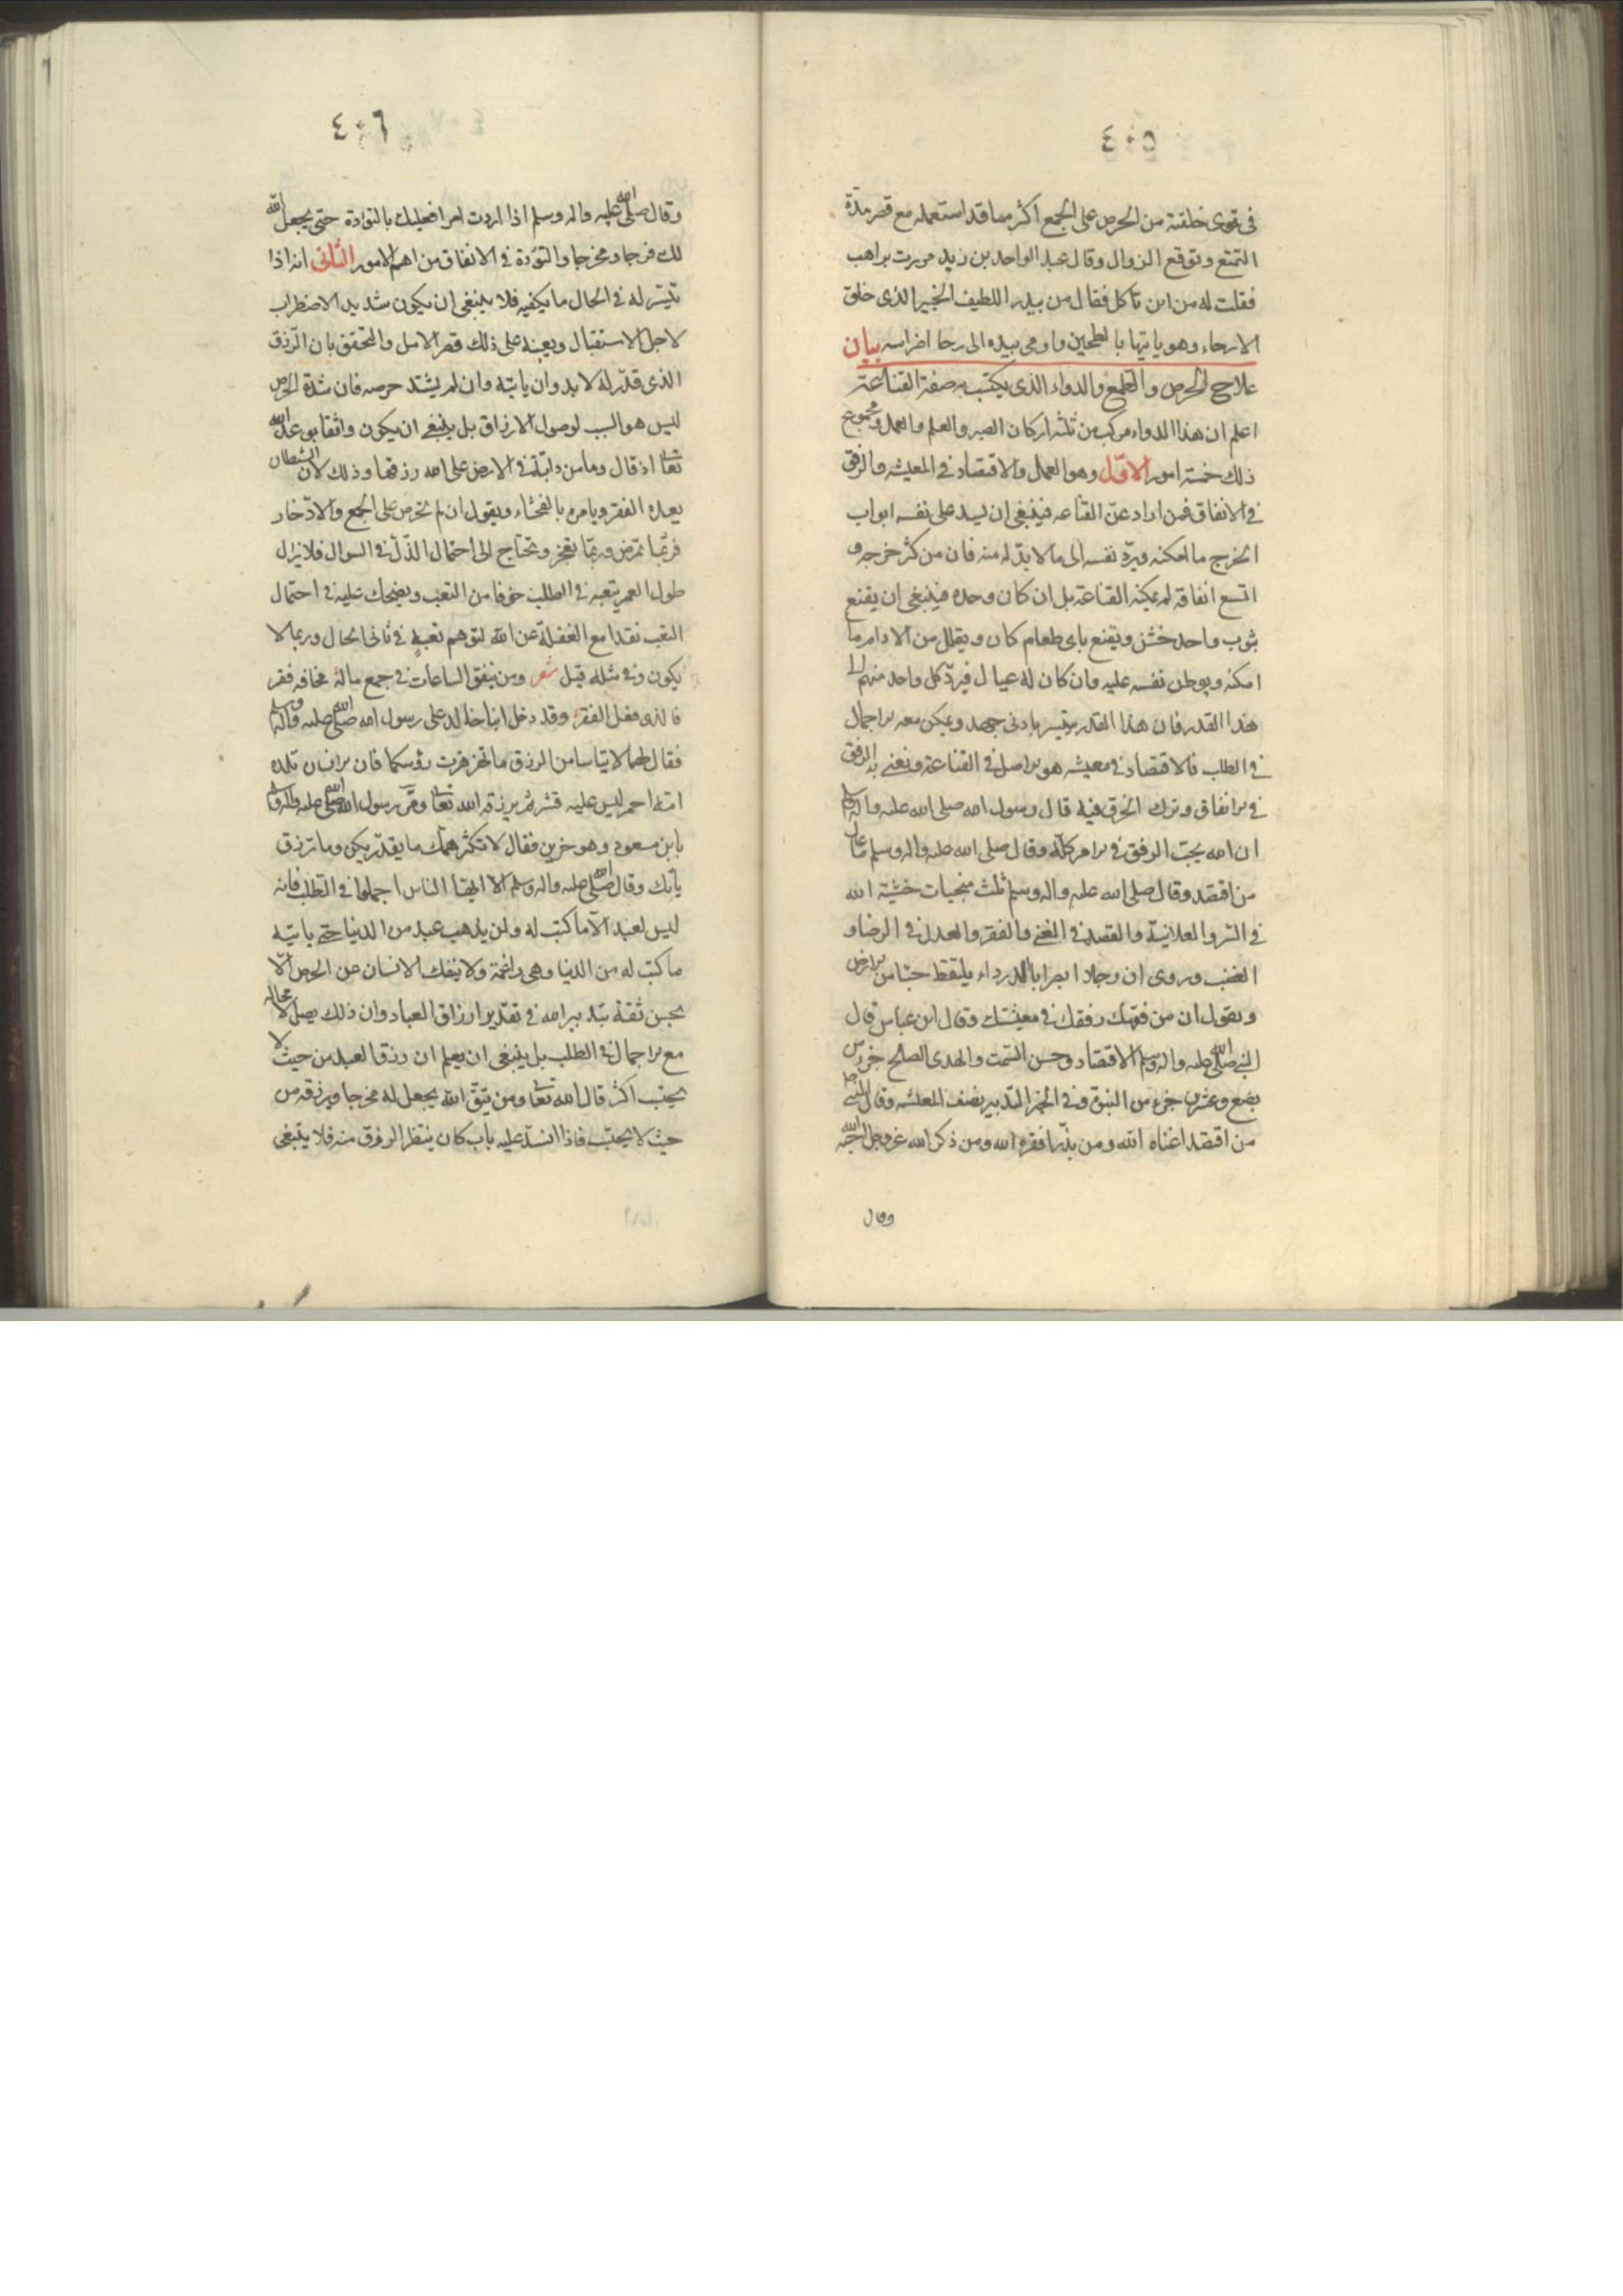 ٤٠٥
في قوى خلقته من الحرص على الجمع اكثر مما قد استعمله مع قصر مدة
التمتع وتوقع الزوال وقال عبد الواحد بن زيد مررت براهب
فقلت له من اين تأكل فقال من بيدر اللطيف الخبير الذى خلق
الارحاء وهو ياتيها بالطحين واومى بيده الى رحا اضراسه بيان
علاج الحرص والطمع والدواء الذى يكتسب به صفة القناعة
اعلم ان هذا الدواء مركب من ثلثة اركان الصبر والعلم والعمل ومجموع
ذلك خمسة امور الاوّل وهو العمل والاقتصاد في المعيشه والرفق
في الانفاق فمن اراد عز القناعه فينبغى ان يسد على نفسه ابواب
الخرج ما امكنه ويردّ نفسه الى ما لا بدّ له منه فان من كثر خرجه و
اتسع انفاقه لم يمكنه القناعة بل ان كان وحده فينبغى ان يقنع
بثوب واحد خشن ويقنع باى طعام كان ويقلل من الادام ما
امكنه ويوطن نفسه عليه وان كان له عيال فيردّ كل واحد منهم الى
هذا القدر فان هذا القدر يتيسر بادنى جهد ويمكن معه الاجمال
في الطلب فالاقتصاد في معيشه هو الاصل في القناعة ونعنى به الرفق
في الانفاق وترك الخرق فيه قال رسول الله صلى الله عليه واله وسلم
ان الله يحبّ الرفق في الامر كلّه وقال صلى الله عليه واله وسلم ما عال
من اقتصد وقال صلى الله عليه واله وسلم ثلث منجيات خشية الله
في السّر والعلانية والقصد في الغنى والفقر والعدل في الرضا و
الغضب وروى ان رجلا ابصر ابا الدرداء يلتقط حبّا من الارض
ويقول ان من فقهك رفقك في معيشتك وقال ابن عباس قال
النبى صلى الله عليه واله وسلم الاقتصاد وحسن السّمت والهدى الصالح جزء من
بضع وعشرين جزء من النبوّة وفي الخبر التدبير نصف المعيشه وقال النبى
من اقتصد اغناه الله ومن بذّر افقره الله ومن ذكر الله عز وجل احبّه الله
وقال
٤٠٦
وقال صلى الله عليه واله وسلم اذا اردت امرا فعليك بالتؤدة حتى يجعل الله
لك فرجا ومخرجا والتؤدة في الانفاق من اهم الامور الثّانى انه اذا
تيسّر له في الحال ما يكفيه فلا ينبغى ان يكون شديد الاضطراب
لاجل الاستقبال ويعينه على ذلك قصر الامل والتحقق بان الرّزق
الذى قدّر له لا بد وان ياتيه وان لم يشتد حرصه فان شدة الحرص
ليس هو السبب لوصول الارزاق بل ينبغى ان يكون واثقا بوعد الله
تعا اذ قال وما من دابّة في الارض الا على الله رزقها وذلك لان الشيطان
يعده الفقر ويامره بالفحشاء ويقول ان لم تحرص على الجمع والادّخار
فربّما تمرض وربّما تعجز وتحتاج الى احتمال الذّل في السوال فلا يزال
طول العمر يتعبه في الطلب خوفا من التعب ويضحك عليه في احتمال
التعب نقدا مع الغفلة عن الله لتوهم تعب في ثانى الحال وربما لا
يكون وفي مثله قيل شعر ومن ينفق الساعات في جمع ماله مخافه فقر
فالذى فعل الفقر وقد دخل ابنا خالد على رسول الله صلى الله عليه واله وسلم
فقال لهما لا تيأسا من الرزق ما تهزهزت رؤسكما فان الانسان تلده
امّه احمر ليس عليه قشر ثم يرزقه الله تعا ومرّ رسول الله صلى الله عليه واله وسلم
بابن مسعود وهو حزين فقال لا تكثر همّك ما يقدّر يكن وما ترزق
يأتك وقال صلى الله عليه واله وسلم الا ايها الناس اجملوا في الطلب فانه
ليس لعبد الّا ما كتب له ولن يذهب عبد من الدنيا حتى ياتيه
ما كتب له من الدنيا وهى راغمة ولا ينفك الانسان عن الحرص الّا
بحسن ثقته بتدبير الله في تقدير ارزاق العباد وان ذلك يصل لا محاله
مع الاجمال في الطلب بل ينبغى ان يعلم ان رزق العبد من حيث لا
يحتسب اكثر قال الله تعا ومن يتق الله يجعل له مخرجا ويرزقه من
حيث لا يحتسب فاذا انسدّ عليه باب كان ينتظر الرزق منه فلا ينبغى